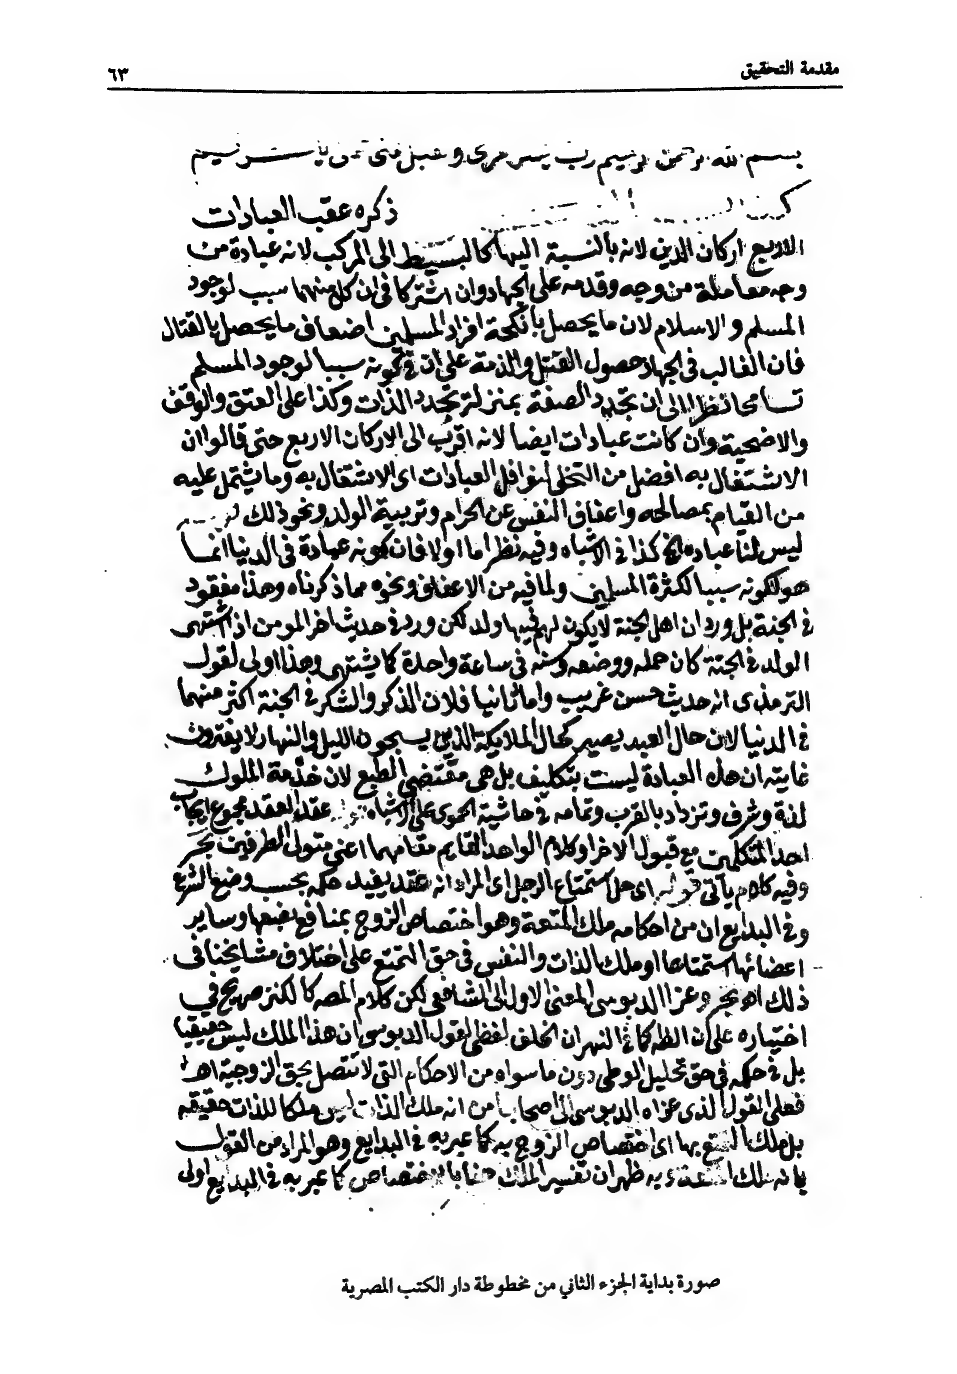 مقدمة التحقيق ٦٣
بسم الله الرحمن الرحيم رب يسر
ذكره عقب العبادات
الاربع اركان الدين لانه بالنسبة اليها كالبسيط الى المركب لانه عبادة من
وجه معاملة من وجه وقدمه على الجهاد وان اشتركا في ان كل منهما سبب لوجود
المسلم والاسلام لان ما يحصل بانكحة افراد المسلمين اضعاف ما يحصل بالقتال
فان الغالب في الجهاد حصول القتل والذمة على ان في كونه سببا لوجود المسلم
تسامحا نظرا الى ان تجدد الصفة بمنزلة تجدد الذات وكذا على العتق والوقف
والاضحية وان كانت عبادات ايضا لانه اقرب الى الاركان الاربع حتى قالوا ان
الاشتغال به افضل من التخلي لنوافل العبادات اى الاشتغال به وما يشتمل عليه
من القيام بمصالحه واعفاف النفس عن الحرام وتربية الولد ونحو ذلك
ليس لنا عبادة الخ كذا في الاشباه وفيه نظر اما اولا فان كونه عبادة في الدنيا انما
هو لكونه سببا لكثرة المسلمين ولما فيه من الاعفاف ونحوه مما ذكرناه وهذا مفقود
في الجنة بل ورد ان اهل الجنة لا يكون لهم فيها ولد لكن ورد في حديث اخر المومن اذا اشتهى
الولد في الجنة كان حمله ووضعه وسنه في ساعة واحدة كما يشتهى وهذا اولى لقول
الترمذى انه حديث حسن غريب واما ثانيا فلان الذكر والشكر في الجنة اكثر منهما
في الدنيا لان حال العبد يصير كحال الملايكة الذين يسبحون الليل والنهار لا يفترون
غايته ان هذه العبادة ليست بتكليف بل هي مقتضى الطبع لان خدمة الملوك
لذة وشرف وتزداد بالقرب وتمامه في حاشية الحموى على الاشباه عقد العقد مجموع ايجاب
احد المتكلمين مع قبول الاخر او كلام الواحد القايم مقامهما اعني متولى الطرفين بحر
وفيه كلام يأتي اى حل استمتاع الرجل اى المراد انه عقد يفيد حكمه بحسب وضع الشرع
وفي البدايع ان من احكامه ملك المتعة وهو اختصاص الزوج بمنافع بضعها وساير
اعضائها استمتاعا او ملك الذات والنفس في حق التمتع على اختلاف مشايخنا في
ذلك اه بحر وعزا الدبوسى المعنى الاول الى الشافعي لكن كلام المصه كالكنز صريح في
اختياره على ان الظه كما في النهر ان الخلف لفظى لقول الدبوسى ان هذا الملك ليس حقيقيا
بل في حكمه في حق تحليل الوطى دون ما سواه من الاحكام التى لا تتصل بحق الزوجية اه
فعلى القول الذى عزاه الدبوسى الى اصحابنا من انه ملك الذات ليس ملكا للذات حقيقة
بل ملك التمتع بها اى اختصاص الزوج به كما عبر به في البدايع وهو المراد من القول
بانه ملك المتعة وبه ظهر ان تفسير الملك هنا بالاختصاص كما عبر به في البدايع اولى
صورة بداية الجزء الثاني من مخطوطة دار الكتب المصرية